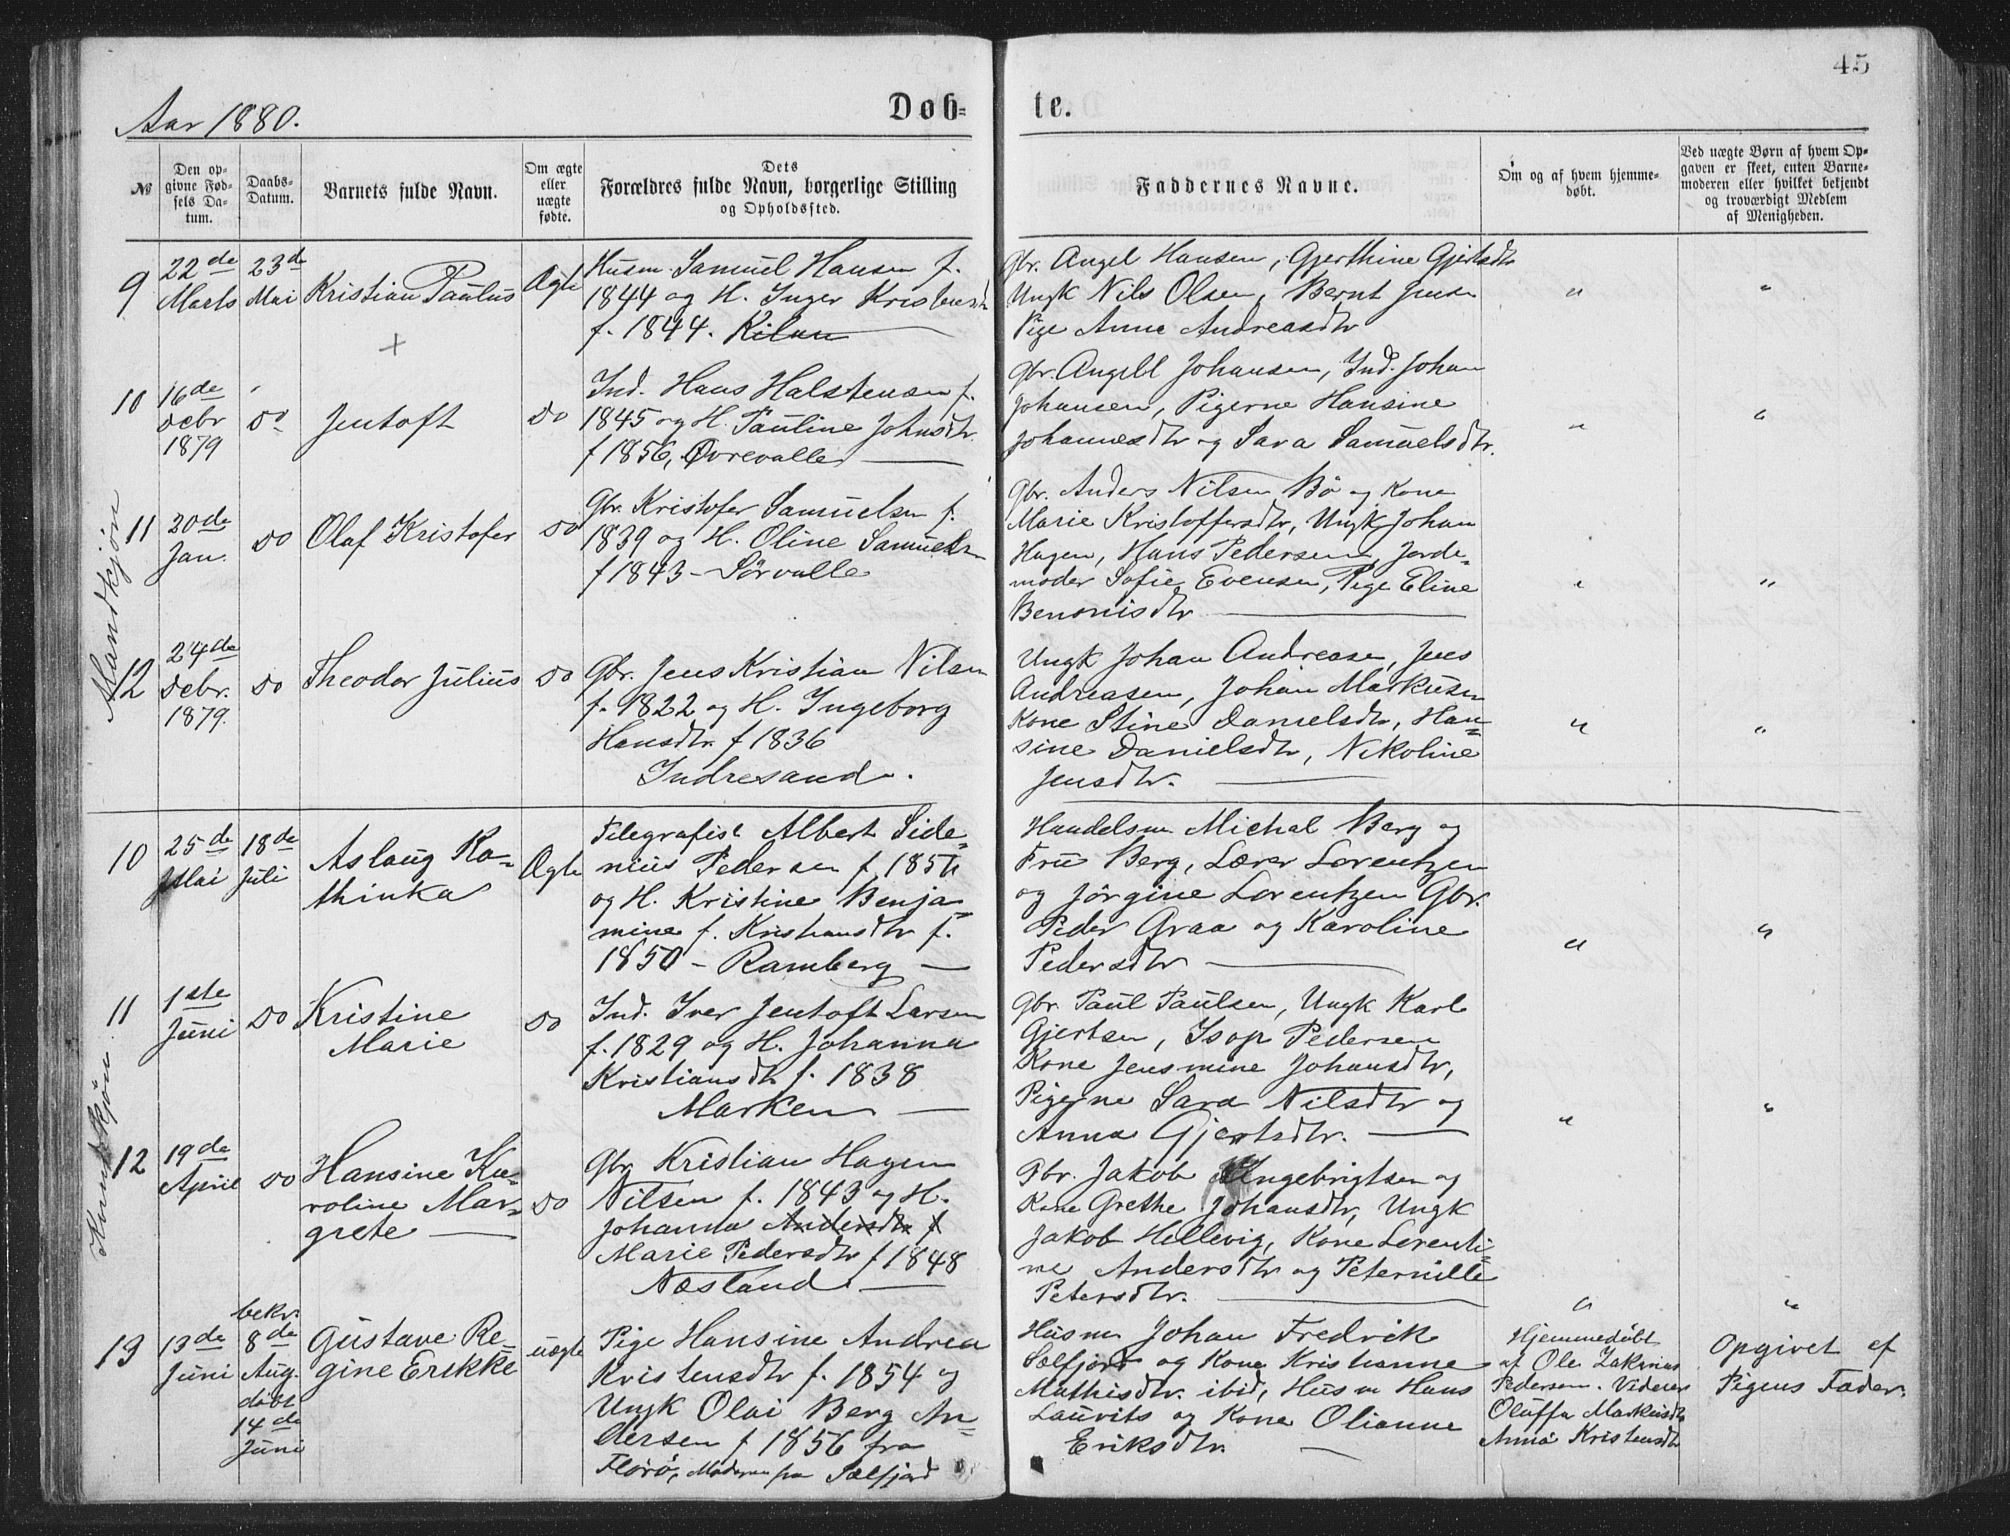 45
Aar 1880.
Döb=
te.
№
Den op-
givne Fød-
sels Da-
tum.
Daabs-
Datum.
Barnets fulde Navn.
Om ægte
eller
uægte
fødte.
Dets
Forældres fulde Navn, borgerlige Stilling
og Opholdssted.
Faddernes Navne.
Om og af hvem hjemme-
døbt.
Ved uægte Børn af hvem Op-
gaven er skeet, enten Barne-
moderen eller hvilket bekjendt
og troværdigt Medlem
af Menigheden.
Mandkjön
9
22de
Marts
23de
Mai
Kristian Paulus
+
Ægte
Husm. Samuel Hansen f.
1844 og H. Inger Kristensdtr
f. 1844. Kilan
Gbr. Angel Hansen, Gjerthine Gjertsdtr
Ungk Nils Olsen, Bernt Jensen
Pige Anne Andreasdtr
"
"
10
16de
Debr
1879
Do
Jentoft
Do
Ind. Hans Halstensen f.
1845 og H. Pauline Johnsdtr
f 1856, Øvrevalle
Gbr. Angell Johansen, Ind. Johan
Johansen, Pigerne Hansine
Johannesdtr og Sara Samuelsdtr.
"
"
11
20de
Jan.
Do
Olaf Kristofer
Do
Gbr. Kristofer Samuelsen f.
1839 og H. Oline Samuelsdtr
f 1843 - Sörvalle
Gbr. Anders Nilsen Bö og Kone
Marie Kristoffersdtr, Ungk Johan
Hagen, Hans Pedersen, Jorde=
moder Sofie Evensen, Pige Eline
Benonisdtr
"
"
12
24de
Debr.
1879.
Do
Theodor Julius
Do
Gbr. Jens Kristian Nilsen
f. 1822 og H. Ingeborg
Hansdtr. f 1836
Indresand.
Ungk Johan Andreasen, Jens
Andreasen, Johan Markusen
Kone Stine Danielsdtr, Han=
sine Danielsdtr, Nikoline
Jensdtr.
"
"
Kvindekjön.
10
25de
Mai
18de
Juli
Aslaug Ka=
thinka
Ægte
Telegrafist Albert Side=
nius Pedersen f. 1854
og H. Kristine Benja=
mine f. Kristiansdtr f.
1850 - Ramberg
Handelsm Michal Berg og
Fru Berg, Lærer Lorentzen
og Jörgine Lorentzen Gbr.
Peder Graa og Karoline
Pedersdtr
"
"
11
1ste
Juni
Do
Kristine
Marie
Do
Ind. Iver Jentoft Larsen
f. 1829 og H. Johanna
Kristiansdtr f. 1838
Marken
Gbr. Paul Paulsen, Ungk Karl
Gjertsen, Isop Pedersen
Kone Jensmine Johansdtr,
Pigerne Sara Nilsdtr og
Anna Gjertsdtr.
"
"
12
19de
April
Do
Hansine Ka=
roline Mar=
grete
Do
Gbr Kristian Hagen
Nilsen f. 1843 og H.
Johanna Andersdtr f
Marie Pedersdtr f 1848
Næsland
Gbr. Jakob Ingebrigtsen og
Kone Grethe Johansdtr, Ungk
Jakob Hellevig, Kone Lorenti=
ne Andersdtr og Peternille
Petersdtr.
"
"
13
13de
Juni
bekr.
8de
Aug.
döbt
14de
Juni
Gustave Re=
gine Erikke
uægte
Pige Hansine Andrea
Kristensdtr f. 1854 og
Ungk Olai Berg An=
dersen f 1856 fra
Florö, Moderen fra Sælfjord
Husm Johan Fredrik
Sælfjord og Kone Kristianne
Mathisdtr. ibid, Husm Hans
Laurits og Kone Olianne
Eriksdtr.
Hjemmedöbt
af Ole Zakarias
Pedersen. Vidner
Oluffa Markusdtr
Anna Kristensdtr
Opgivet af
Pigens Fader.